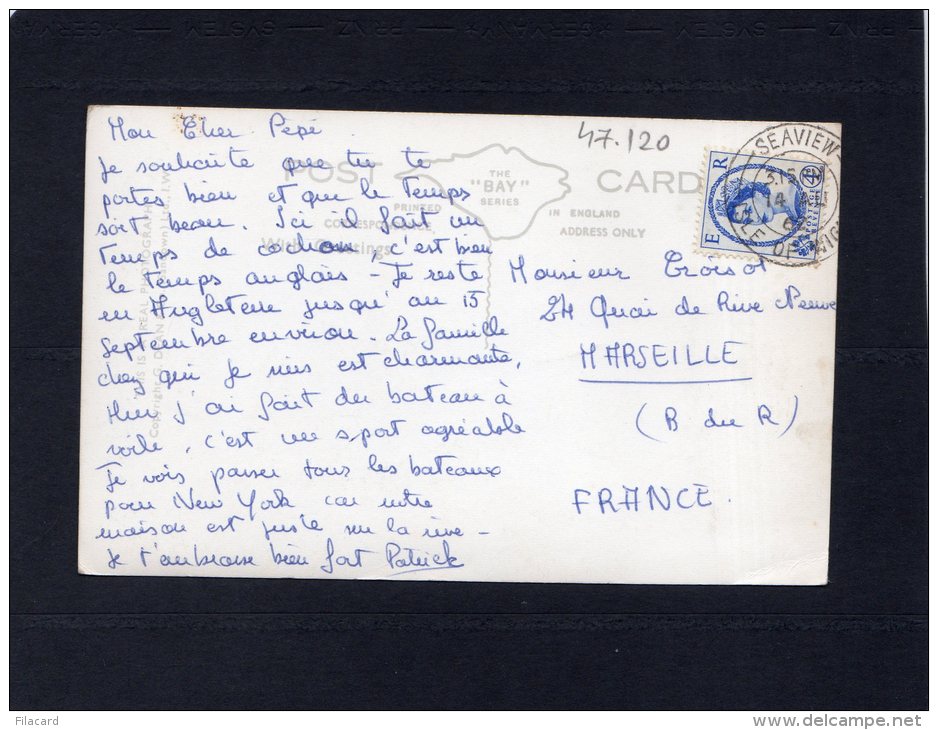 47.120
Mon Cher Pépé
Je souhaite que tu te
portes bien et que le temps
soit beau. Ici il fait un
temps de cochon, c'est bien
le temps anglais - Je reste
en Angleterre jusqu'au 15
Septembre environ. La famille
chez qui je suis est charmante.
Hier j'ai fait du bateau à
voile, c'est un sport agréable
Je vois passer tous les bateaux
pour New York car notre
maison est juste sur la rive -
Je t'embrasse bien fort Patrick
POST CARD
THE
"BAY"
SERIES
PRINTED
IN ENGLAND
CORRESPONDENCE
ADDRESS ONLY
With Greetings
THIS IS A REAL PHOTOGRAPH
Monsieur Croisot
24 Quai de Rive Neuve
MARSEILLE
(B du R)
FRANCE.
SEAVIEW
E R
POSTAGE
REVENUE
Filacard
www.delcampe.net